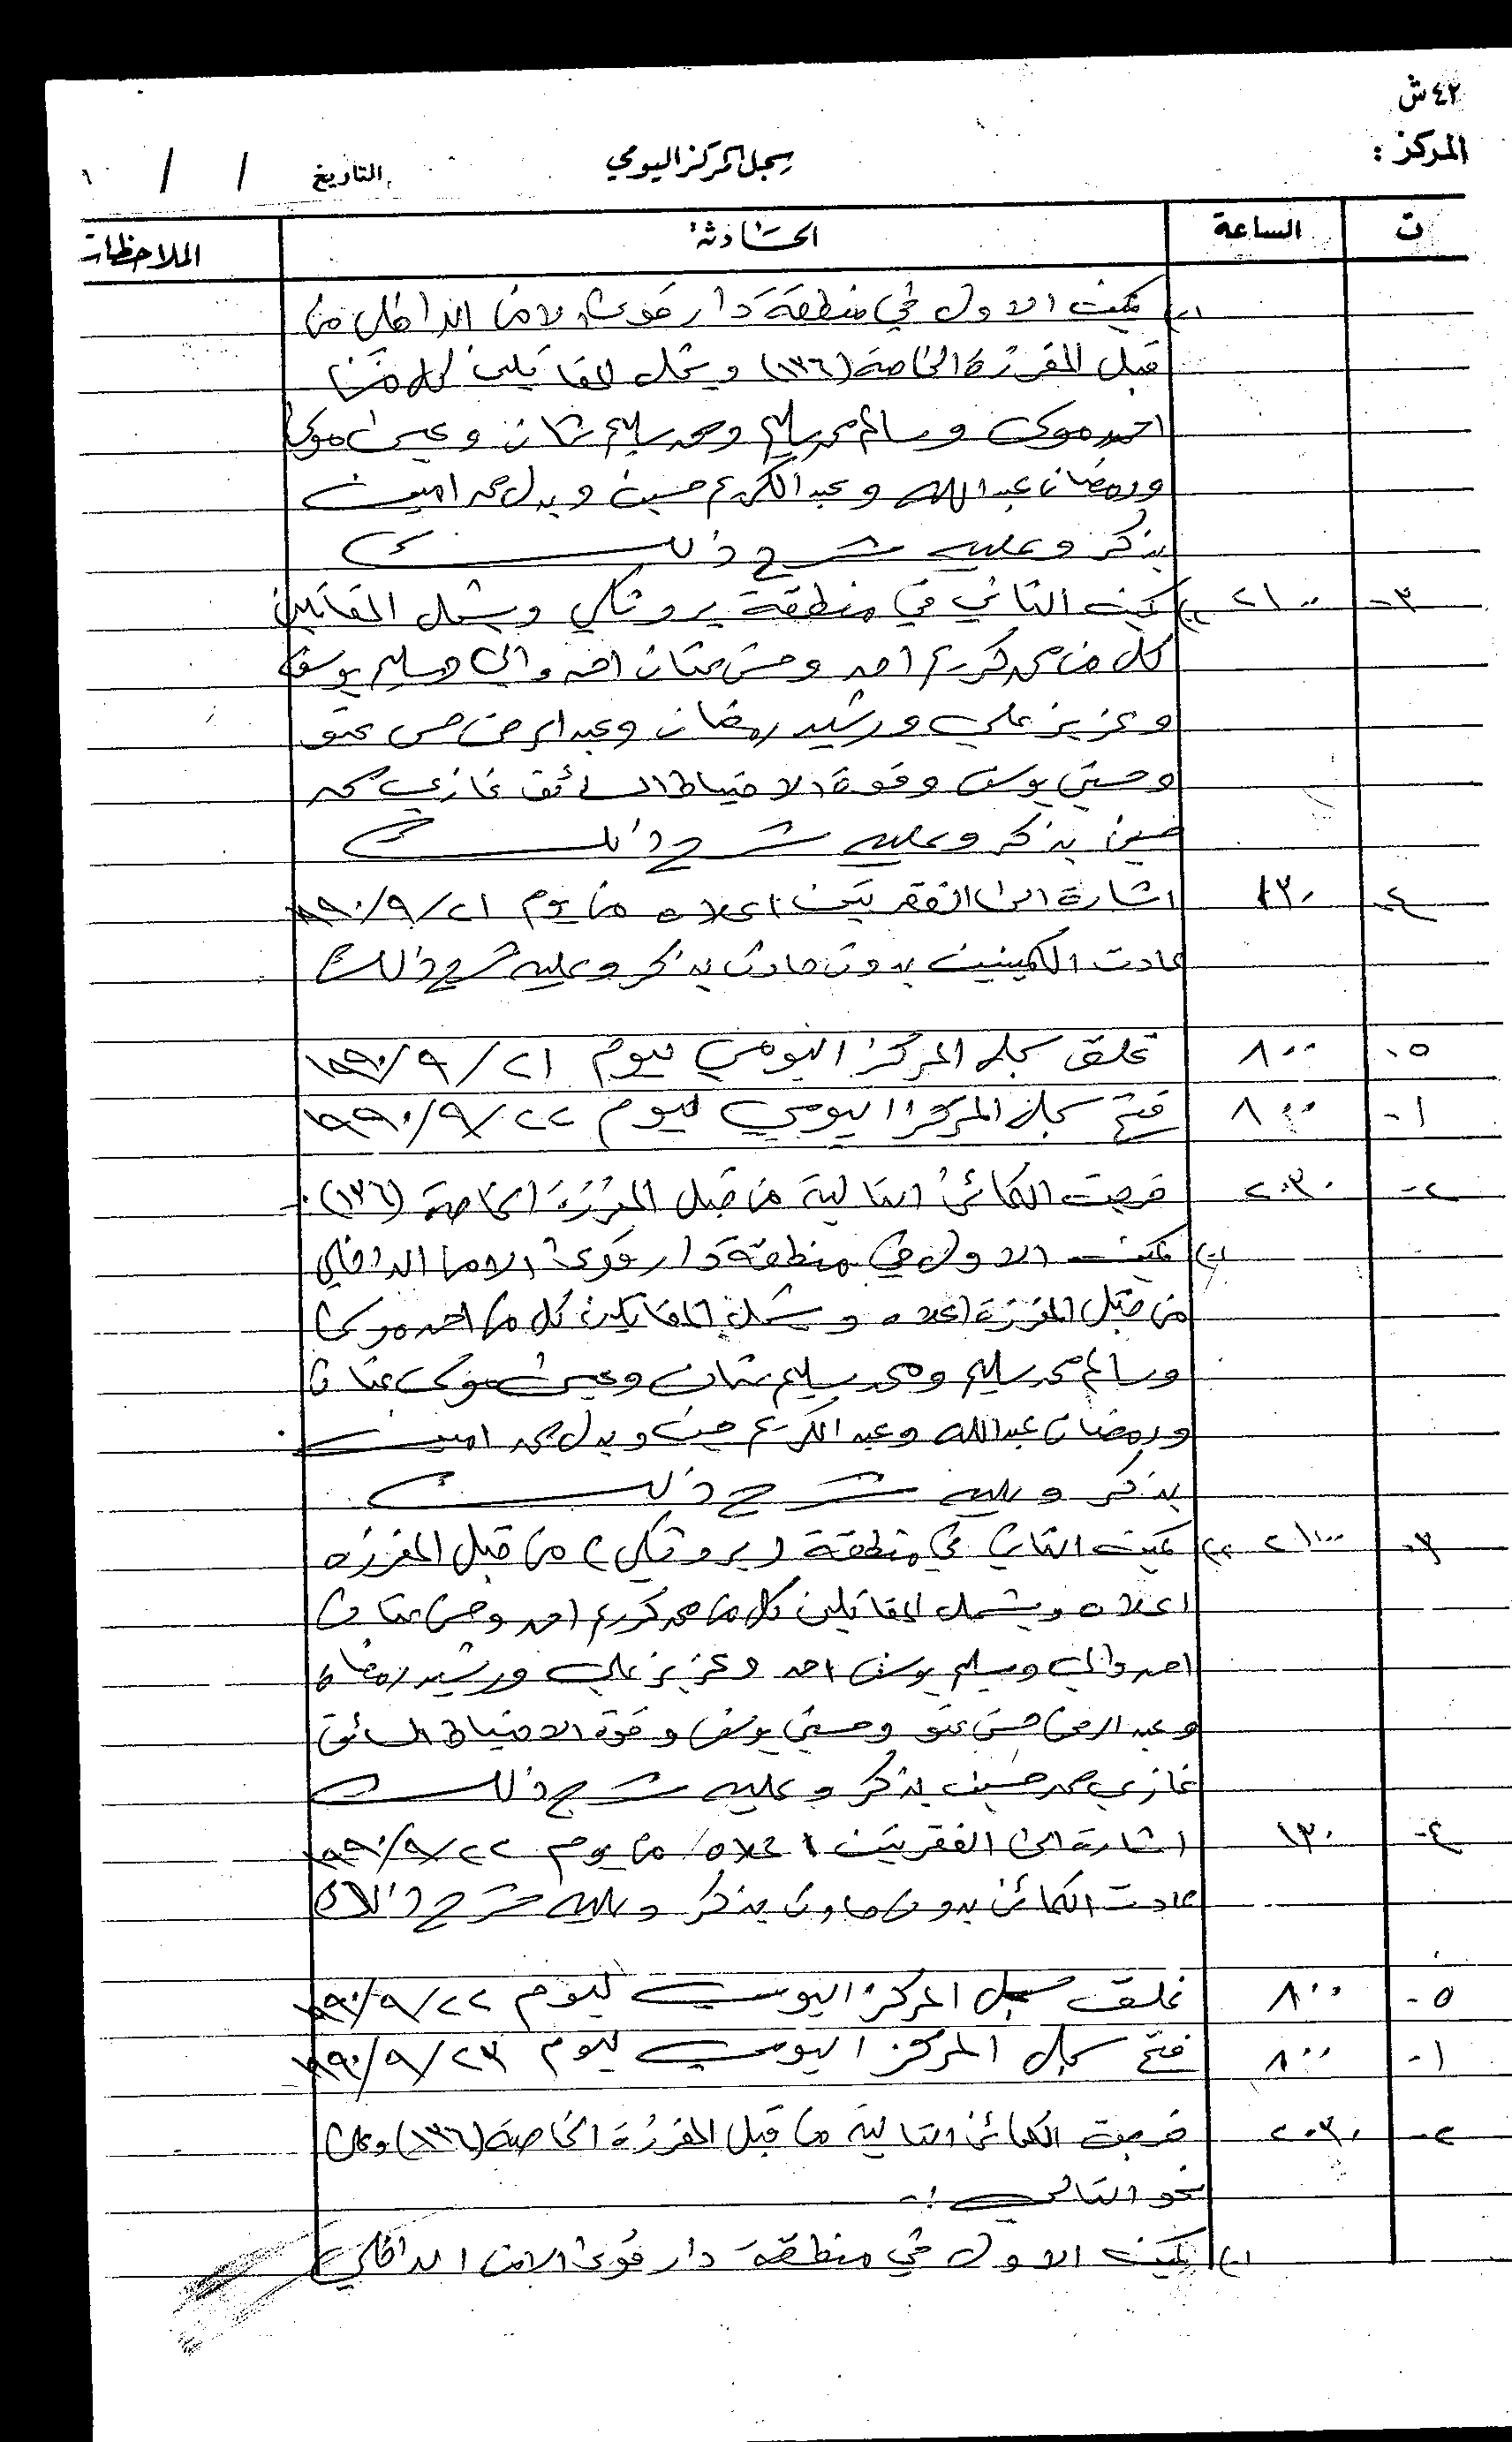 ٤٢ش
المركز :
سجل المركز اليومي
التاريخ / /
ت الساعة الحادثة الملاحظات
١-) كمين الاول في منطقة دار قوى الامن الداخلي من
قبل المفرزة الخاصة (١٣٦) ويشمل المقاتلين كلا من
احمد موسى وسالم محمد سليم ومحمد سليم شمان وعيسى موسى
ورمضان عبدالله وعبد الكريم حسين وبدل محمد امين
يذكر وعليه شرح ذلك
٣- ٢١٠٠ ٢-) كمين الثاني في منطقة بروشكي ويشمل المقاتلين
كل من محمد كريم احمد وحسن عثمان احمد والي وسليم يوسف
وعزيز علي ورشيد رمضان وعبد الرحمن حسن عتو
وحسني يوسف وقوة الاحتياط السائق غازي محمد
حسين يذكر وعليه شرح ذلك
٤- ١٣٠ اشارة الى الفقرتين اعلاه من يوم ١٩٩٠/٩/٢١
عادت الكمينين بدون حادث يذكر وعليه شرح ذلك
٥- ٨٠٠ غلق سجل المركز اليومي ليوم ١٩٩٠/٩/٢١
١- ٨٠٠ فتح سجل المركز اليومي ليوم ١٩٩٠/٩/٢٢
٢- ٢٠٣٠ خرجت الكمائن التالية من قبل المفرزة الخاصة (١٣٦) :-
١-) كمين الاول في منطقة دار قوى الامن الداخلي
من قبل المفرزة اعلاه ويشمل المقاتلين كل من احمد موسى
وسالم محمد سليم ومحمد سليم شمان وعيسى موسى عثمان
ورمضان عبدالله وعبد الكريم حسين وبدل محمد امين
يذكر وعليه شرح ذلك
٣- ٢١٠٠ ٢-) كمين الثاني في منطقة (بروشكي) من قبل المفرزه
اعلاه ويشمل المقاتلين كل من محمد كريم احمد وحسن عثمان
احمد والي وسليم يوسف احمد وعزيز علي ورشيد رمضان
وعبد الرحمن حسن عتو وحسني يوسف وقوة الاحتياط السائق
غازي محمد حسين يذكر وعليه شرح ذلك
٤- ١٣٠ اشارة الى الفقرتين اعلاه من يوم ١٩٩٠/٩/٢٢
عادت الكمائن بدون حادث يذكر وعليه شرح ذلك
٥- ٨٠٠ غلق سجل المركز اليومي ليوم ١٩٩٠/٩/٢٢
١- ٨٠٠ فتح سجل المركز اليومي ليوم ١٩٩٠/٩/٢٣
٢- ٢٠٣٠ خرجت الكمائن التالية من قبل المفرزة الخاصة (١٣٦) وعلى
نحو التالي :-
١-) كمين الاول في منطقة دار قوى الامن الداخلي